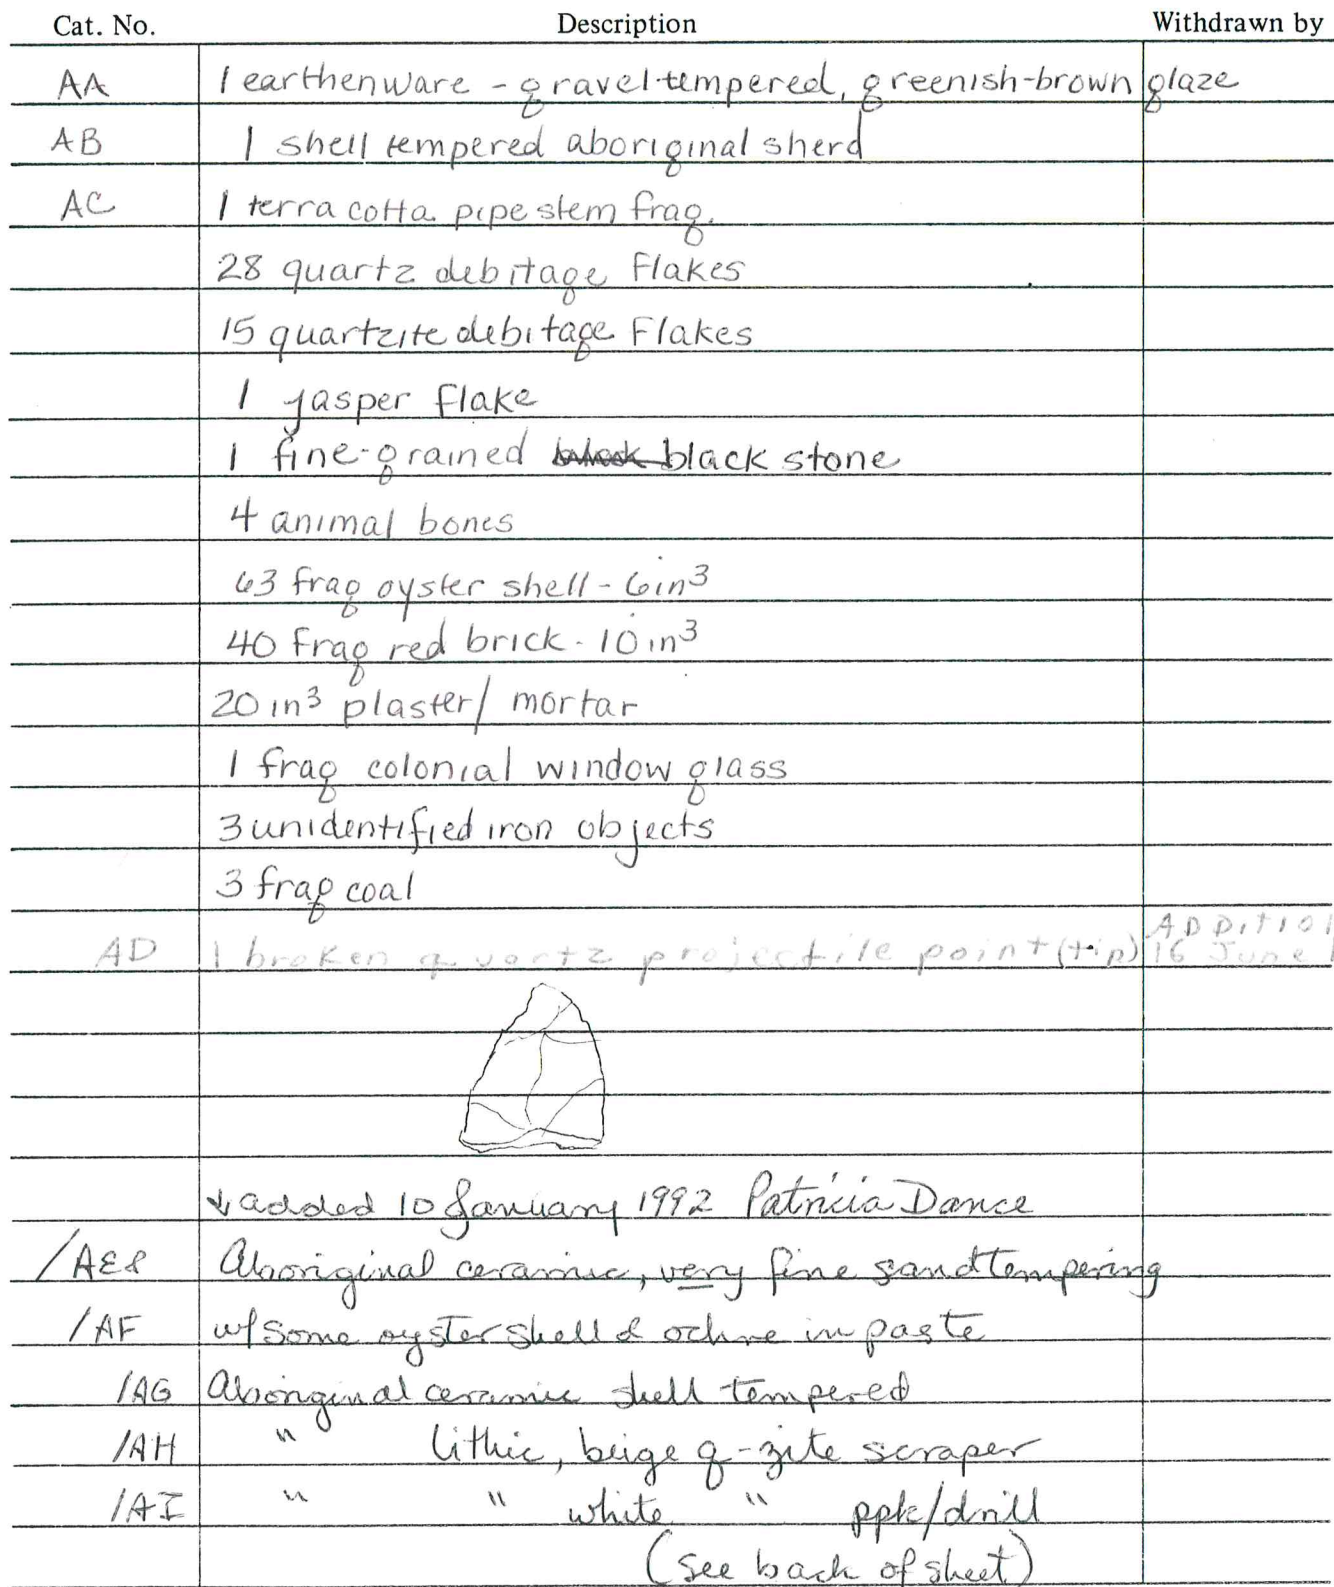 Cat. No. Description Withdrawn by
AA 1 earthenware - gravel tempered, greenish-brown glaze
AB 1 shell tempered aboriginal sherd
AC 1 terra cotta pipe stem frag.
28 quartz debitage flakes
15 quartzite debitage flakes
1 jasper flake
1 fine-grained black black stone
4 animal bones
63 frag oyster shell - 6 in³
40 frag red brick - 10 in³
20 in³ plaster/ mortar
1 frag colonial window glass
3 unidentified iron objects
3 frag coal
ADDITIO
AD 1 broken quartz projectile point (tip) 16 June
↓ added 10 January 1992 Patricia Dance
/AE& Aboriginal ceramic, very fine sand tempering
/AF w/ some oyster shell & ochre in paste
/AG Aboriginal ceramic shell tempered
/AH " lithic, beige q-zite scraper
/AI " " white " ppk/drill
(see back of sheet)